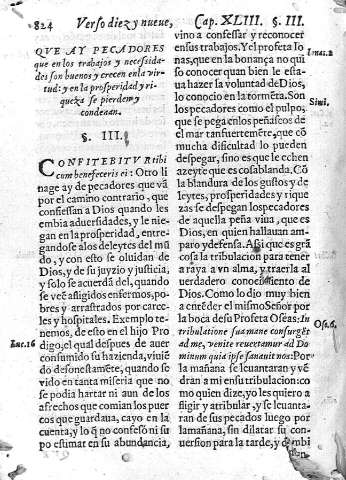 824 Verso diez y nueue, Cap. XLIII. §. III.
QVE AY PECADORES
que en los trabajos y necessida-
des son buenos y crecen en la vir-
tud: y en la prosperidad y ri-
queza se pierden y
condenan.
§. III.
CONFITEBITVR tibi
cum benefeceris ei: Otro li
nage ay de pecadores que vā
por el camino contrario, que
confiessan a Dios quando les
embia aduersidades, y le nie-
gan en la prosperidad, entre-
gandose a los deleytes del mū
do, y con esto se oluidan de
Dios, y de su juyzio y justicia,
y solo se acuerdā del, quando
se veē afligidos enfermos, po-
bres y arrastrados por carce-
les y hospitales. Exemplo te-
nemos, de esto en el hijo Pro
Luc. 16
digo, el qual despues de auer
consumido su hazienda, viuiē
do desonestamēte, quando se
vido en tanta miseria que no
se podia hartar ni aun de los
afrechos que comian los puer
cos que guardaua, cayo en la
cuenta, y lo q̄ no confesò ni su
po estimar en su abundancia,
vino a confessar y reconocer
en sus trabajos. Y el profeta Io
Ionas. 2
nas, que en la bonança no qui
so conocer quan bien le esta-
ua hazer la voluntad de Dios,
lo conocio en la tormēta. Son
Simi.
los pecadores como el pulpo,
que se pega en los peñascos de
el mar tan fuertemēte, que cō
mucha dificultad lo pueden
despegar, sino es que le echen
azeyte que es cosa blanda. Cō
la blandura de los gustos y de
leytes, prosperidades, y rique
zas se despegan los pecadores
de aquella peña viua, que es
Dios, en quien hallauan am-
paro y defensa. Assi que es grā
cosa la tribulacion para tener
a raya a vn alma, y traerla al
verdadero conocimiento de
Dios. Como lo dijo muy bien
a entēder el mismo Señor por
la boca de su Profeta Oseas: In
Ose. 6.
tribulatione sua mane consurgēt
ad me, venite reuertamur ad Do
minum quia ipse sanauit nos: Por
la mañana se leuantaran y ven
dran a mi en su tribulacion: co
mo quien dize, yo les quiero a
fligir y atribular, y se leuanta-
ran de sus pecados luego por
la mañana, sin dilatar su con-
uersion para la tarde, y dirā mi